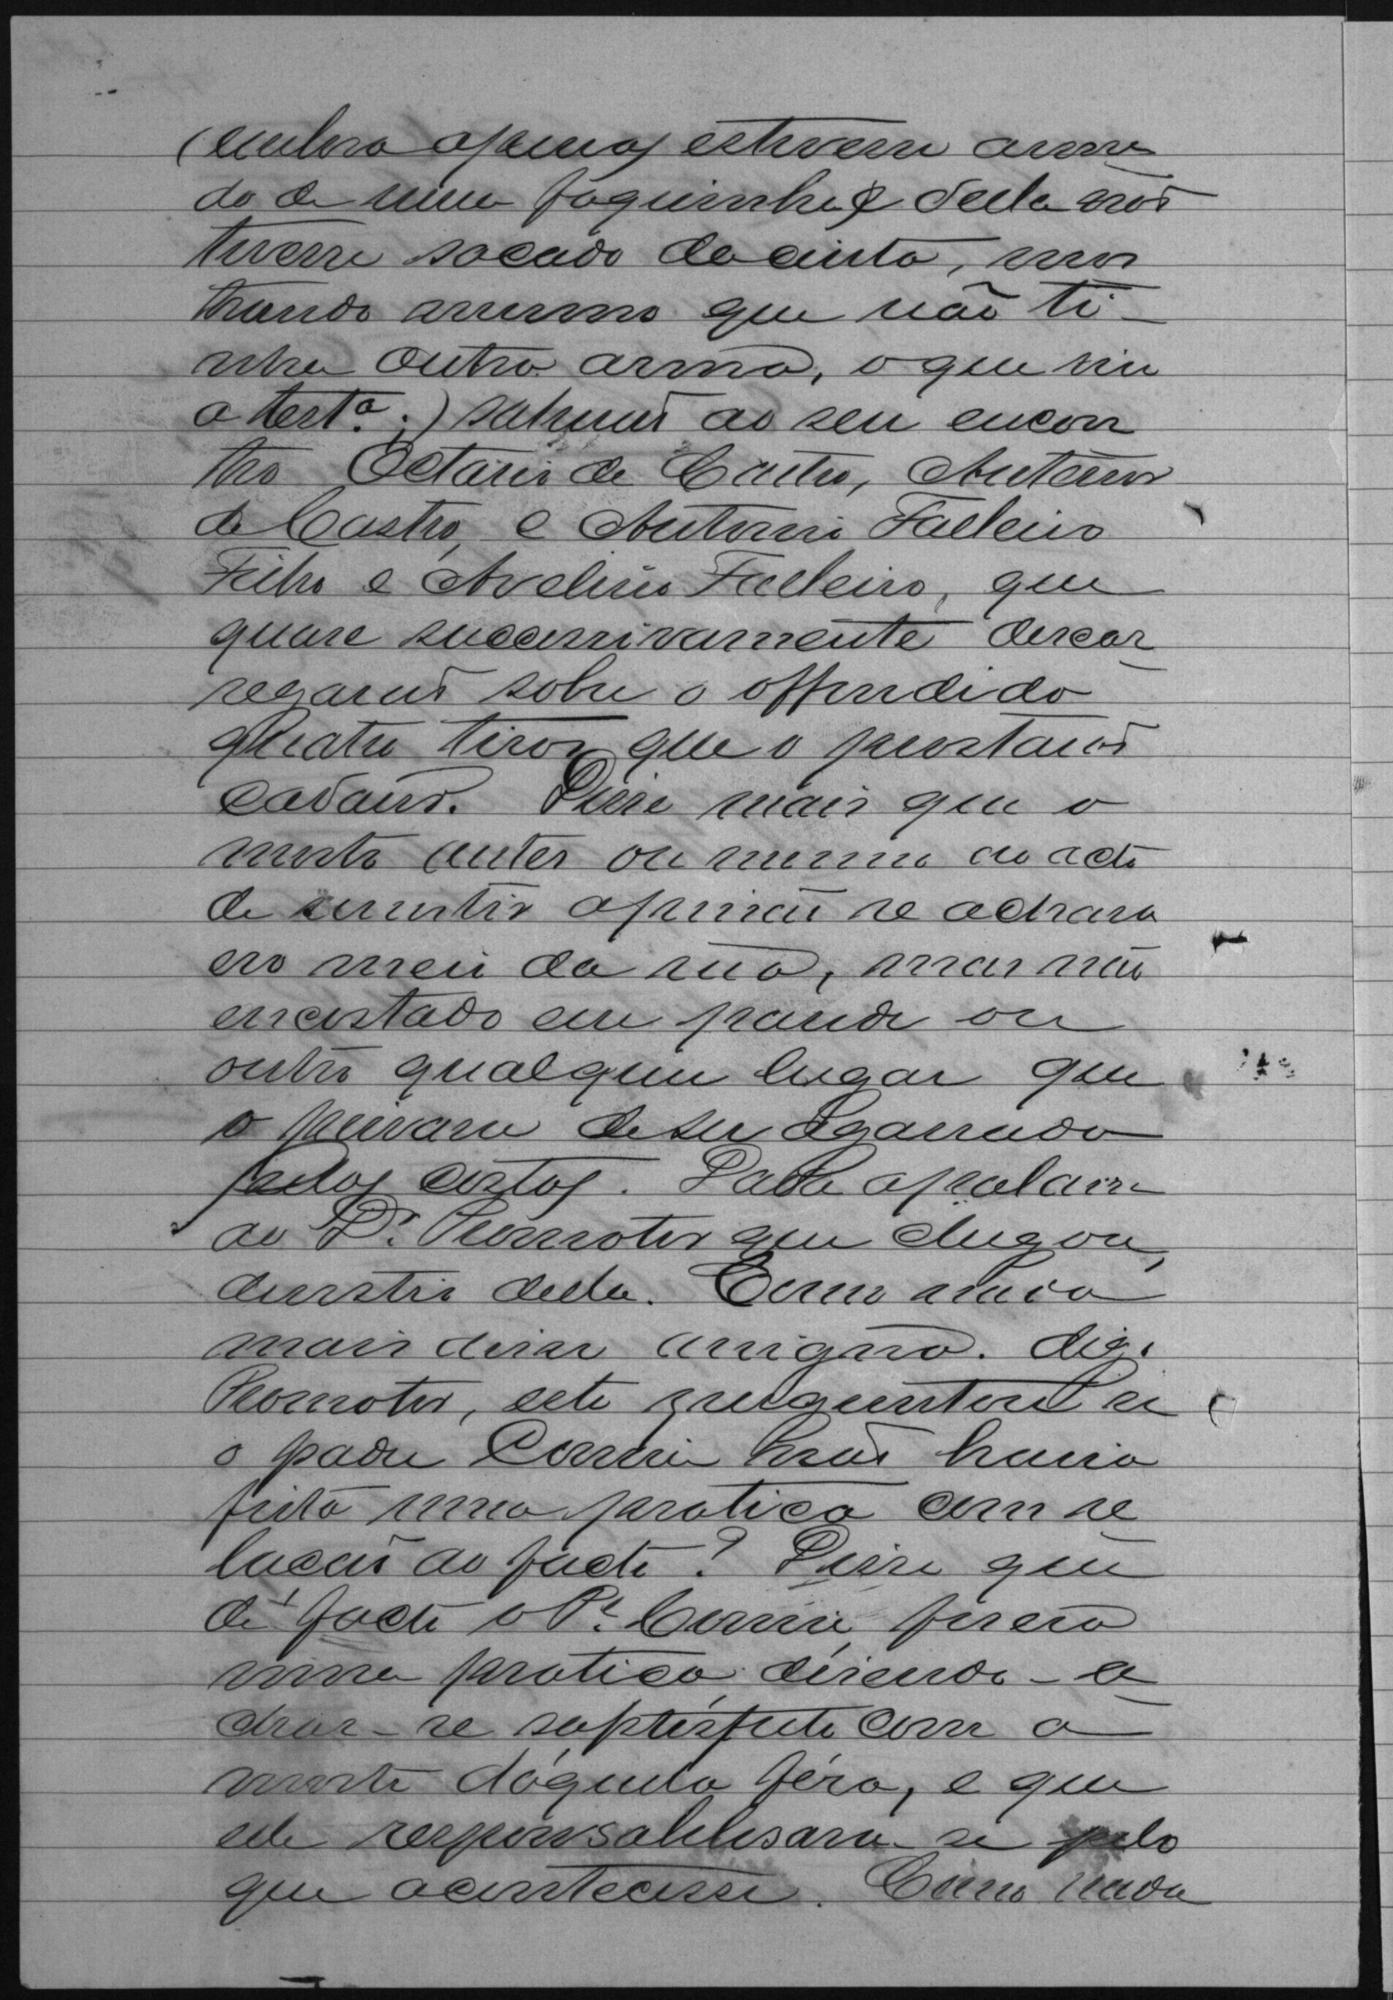 (embora apenas estivesse arma
do de uma faquinha e della não
tivesse sacado da cinta, mos
trando mesmo que não ti-
nha outra arma, o que viu
a testª;) sahiram ao seu encon
tro Octavio de Castro, Antenor
de Castro, e Antonio Falleiro
Filho e Avelino Falleiro, que
quase successivamente descar
regaram sobre o offendido
quatro tiros que o prostaram
cadaver. Disse mais que o
morto antes ou mesmo no acto
de resistir a prisão se achava
no meio da rua, mas não
encostado em parede ou
outro qualquer lugar que
o privara de ser agarrado
pelas costas. Dada a palavra
ao Dr. Promotor que chegou,
desistiu della. E como nada
mais disse assigna. digo
Promotor, este preguntou si
o padre Correia não havia
feito uma pratica com re
lação ao facto? Disse que
de facto o Pe. Correia fizera
uma pratica dizendo-a
char-se satisfeito com a
morte daquela féra, e que
elle responsabilisara-se pelo
que acontecesse. Como nada